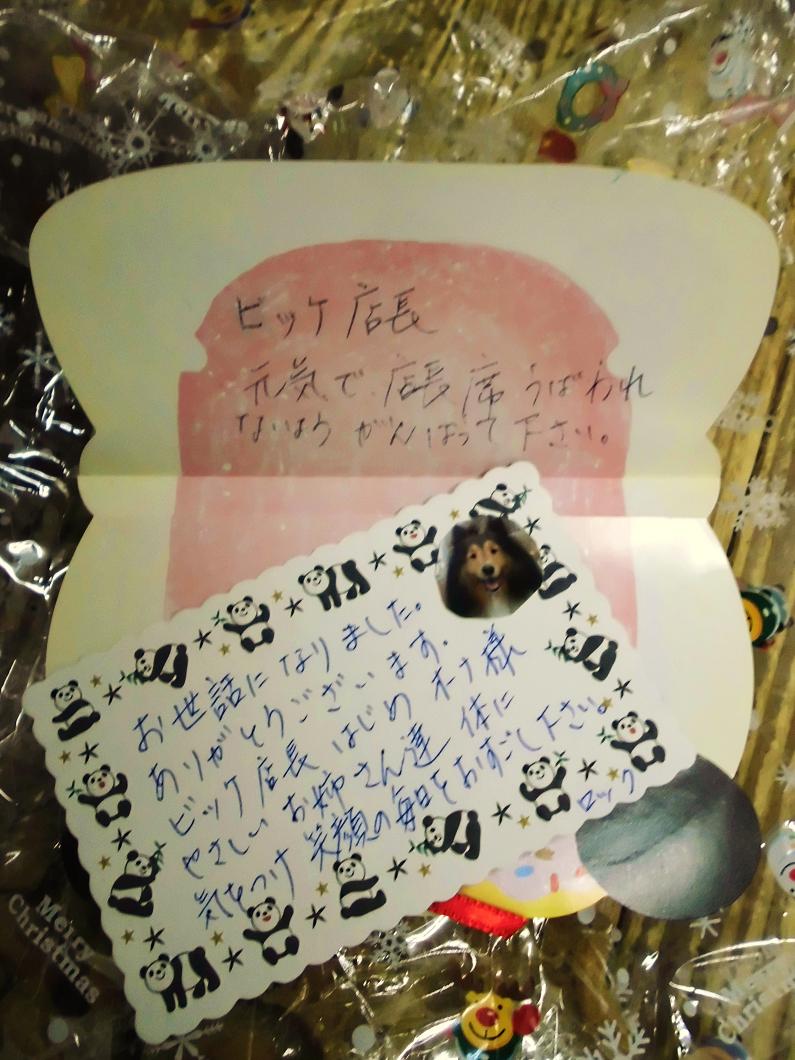 ビッケ店長
元気で店長席うばわれ
ないよう がんばって下さい。
お世話になりました。
ありがとうございます。
ビッケ店長はじめ オーナー様
やさしい お姉さん達 体に
気をつけ 笑顔の毎日をおすごし下さい。
ロック
Merry
Christmas
Merry
Christmas